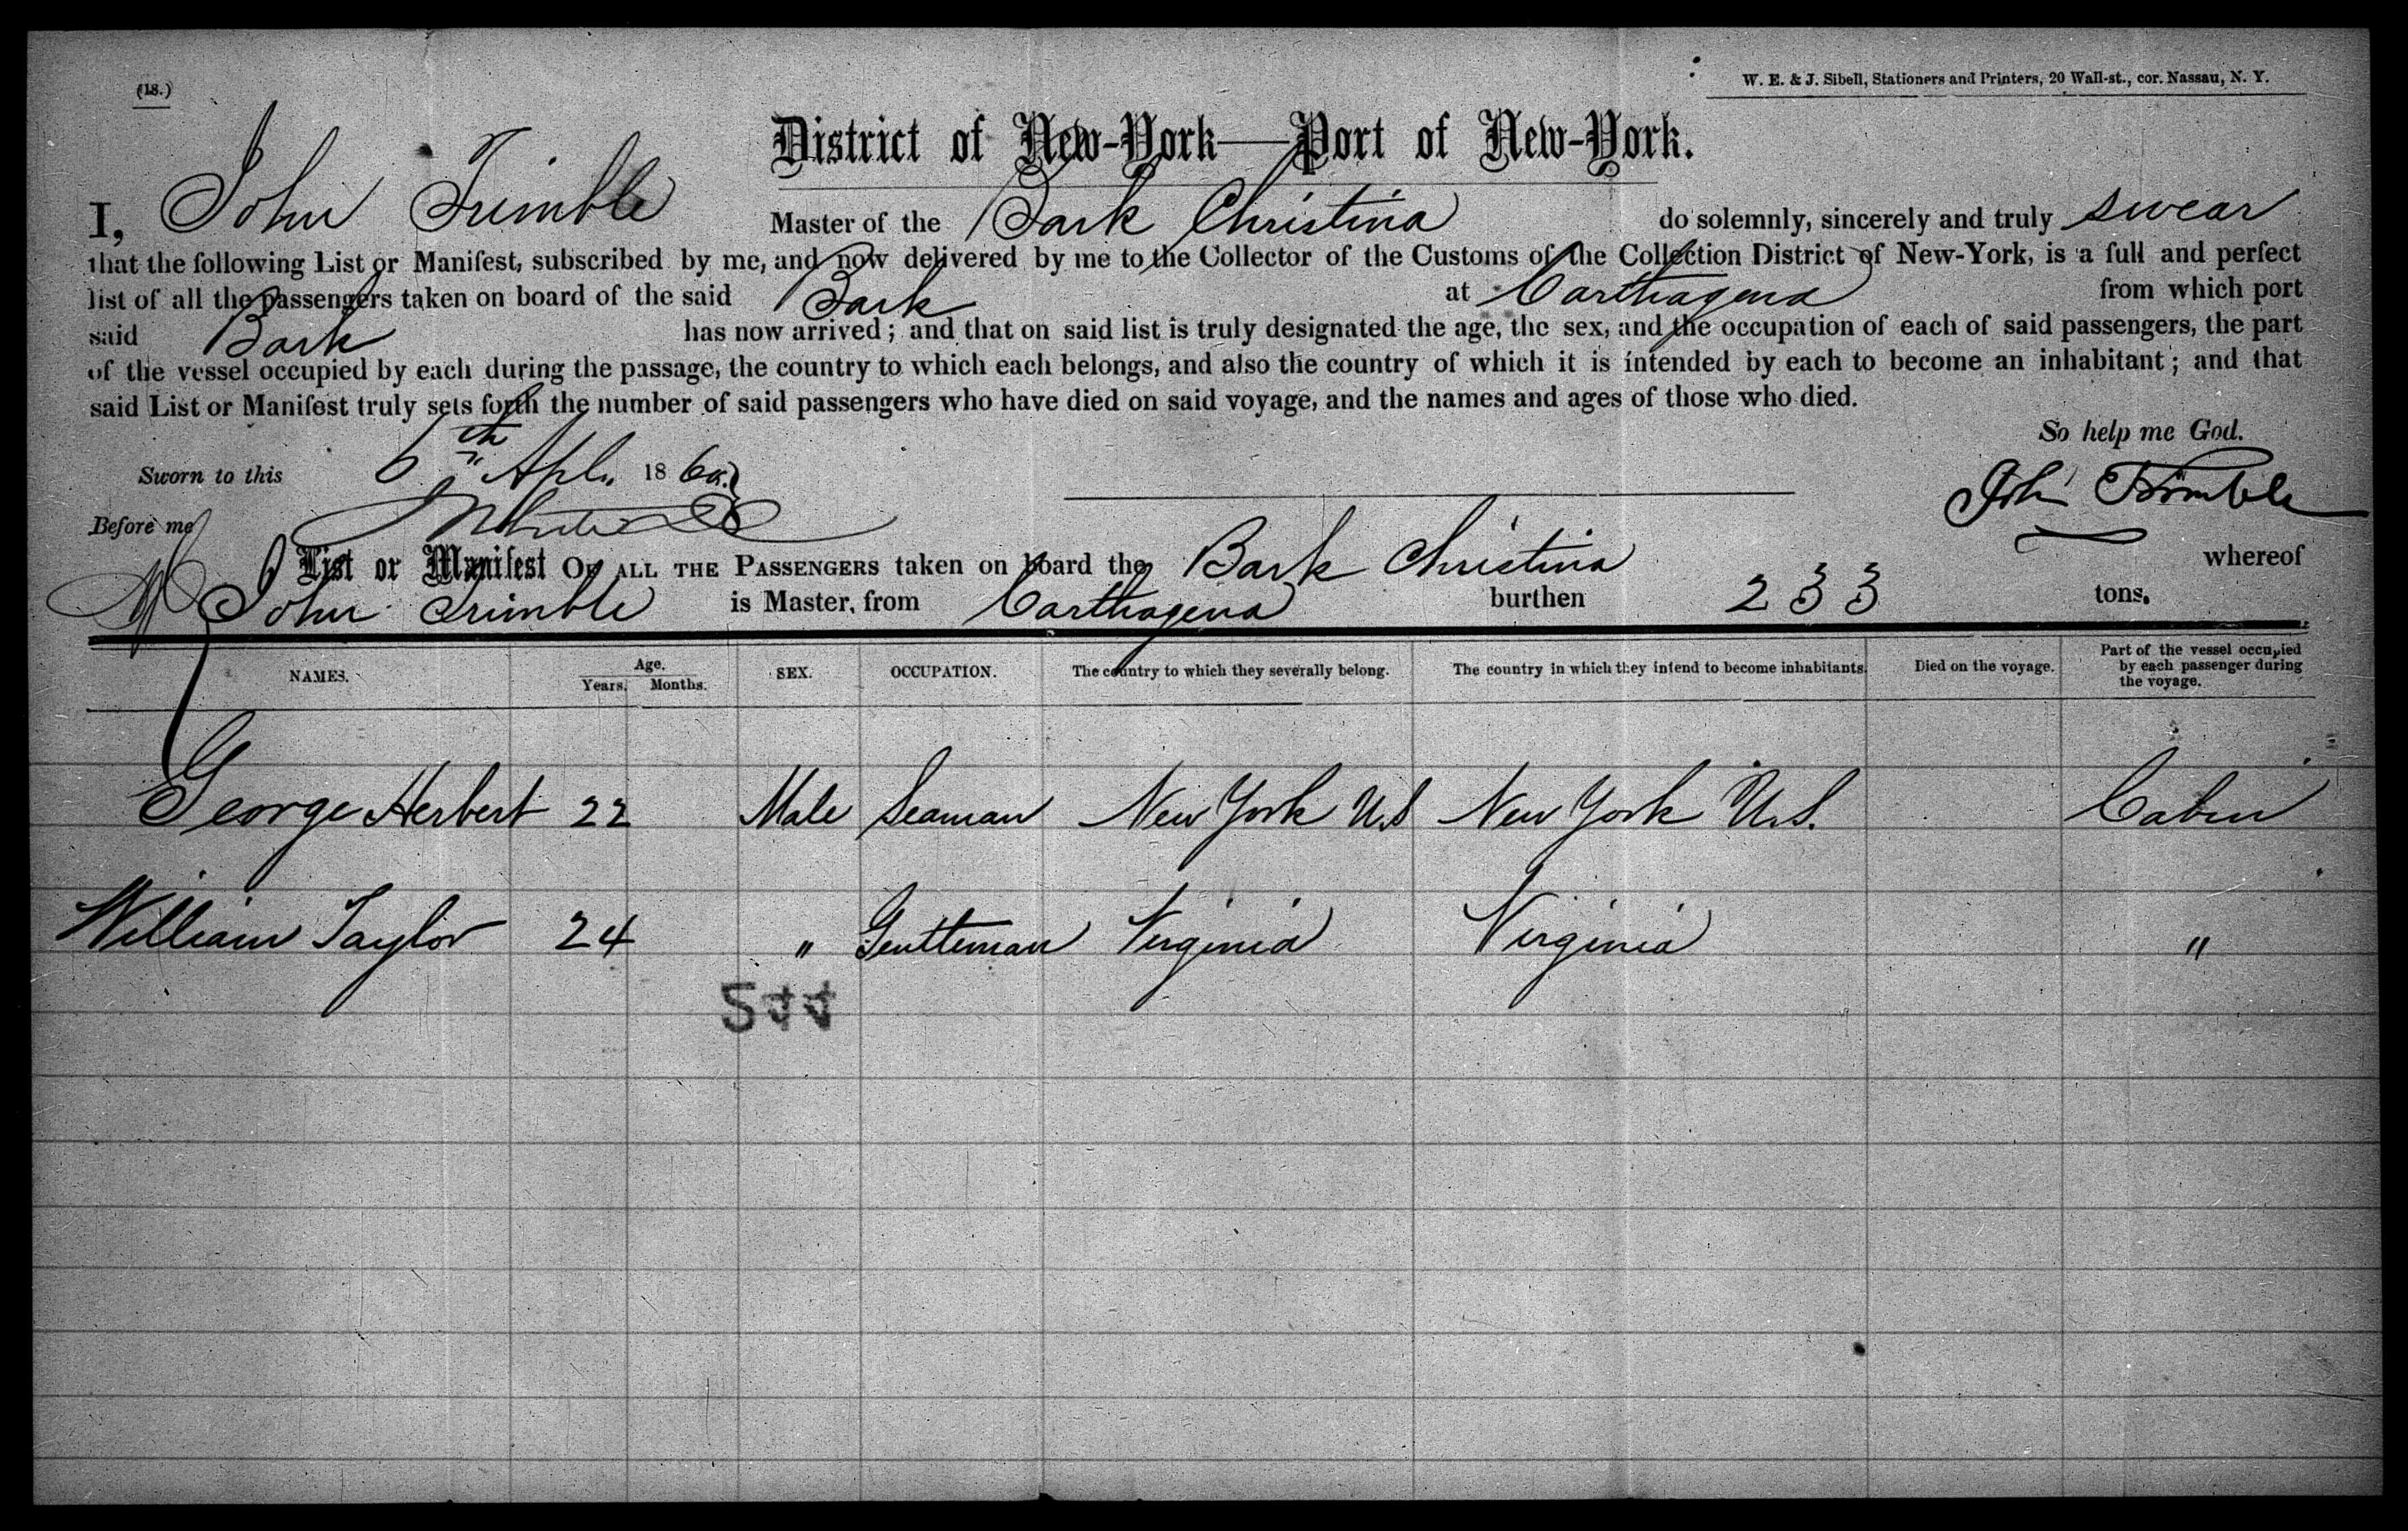 (18.)
W. E. & J. Sibell, Stationers and Printers, 20 Wall-st., cor. Nassau, N. Y.
District of New-York—Port of New-York.
I, John Trimble Master of the Bark Christina do solemnly, sincerely and truly swear
that the following List or Manifest, subscribed by me, and now delivered by me to the Collector of the Customs of the Collection District of New-York, is a full and perfect
list of all the passengers taken on board of the said Bark at Carthagena from which port
said Bark has now arrived; and that on said list is truly designated the age, the sex, and the occupation of each of said passengers, the part
of the vessel occupied by each during the passage, the country to which each belongs, and also the country of which it is intended by each to become an inhabitant; and that
said List or Manifest truly sets forth the number of said passengers who have died on said voyage, and the names and ages of those who died.
So help me God.
Sworn to this 6th Apl. 186
John Trimble
Before me
List or Manifest OF ALL THE PASSENGERS taken on board the Bark Christina whereof
John Trimble is Master, from Carthagena burthen 233 tons.
NAMES. Age. Years. Months. SEX. OCCUPATION. The country to which they severally belong. The country in which they intend to become inhabitants. Died on the voyage. Part of the vessel occupied by each passenger during the voyage.
George Herbert 22 Male Seaman New York U.S New York U.S. Cabin
William Taylor 24 " Gentleman Virginia Virginia "